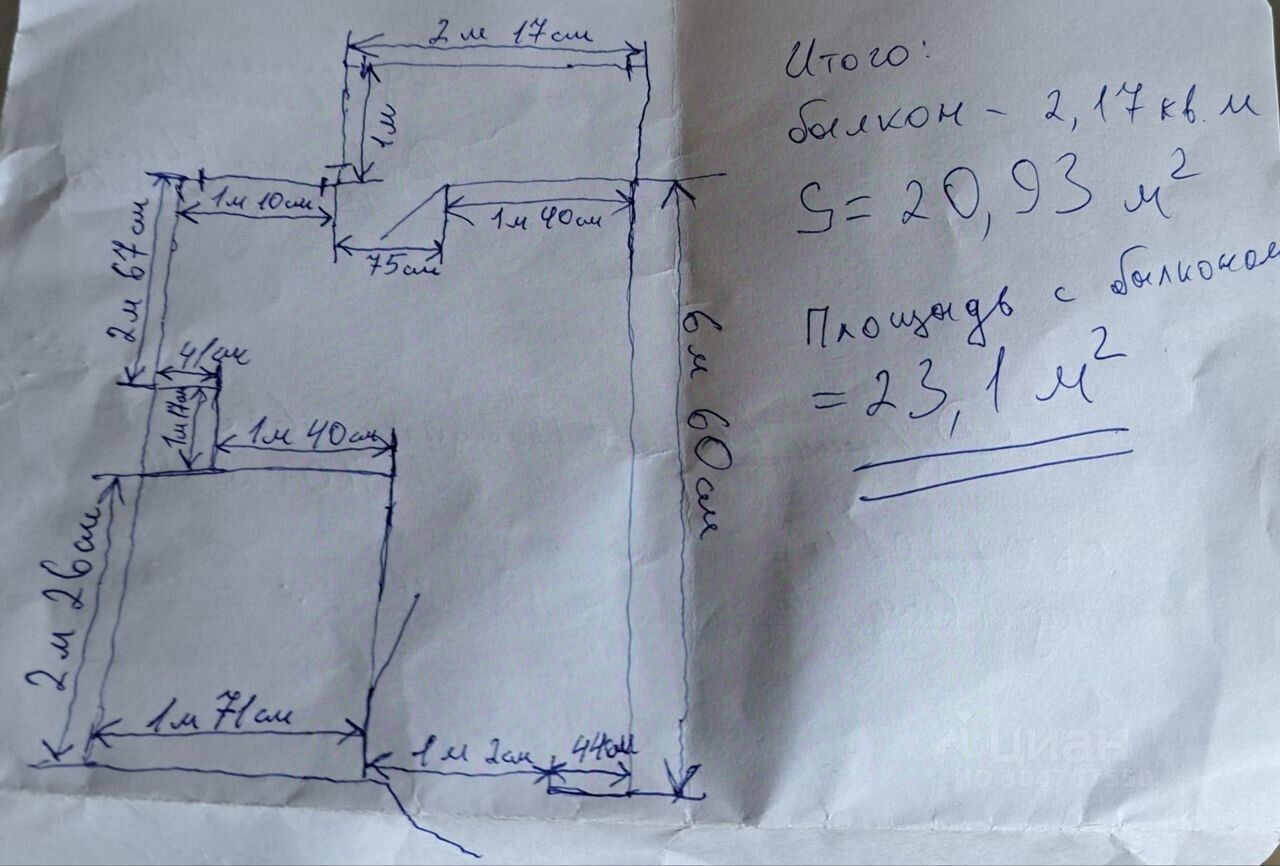 2 м 17 см
1 м
1 м 10 см
1 м 40 см
75 см
2 м 67 см
41 см
1 м 17 см
1 м 40 см
6 м 60 см
2 м 26 см
1 м 71 см
1 м 2 см
44 см
Итого:
балкон - 2,17 кв. м
S = 20,93 м²
Площадь с балконом
= 23,1 м²
циан